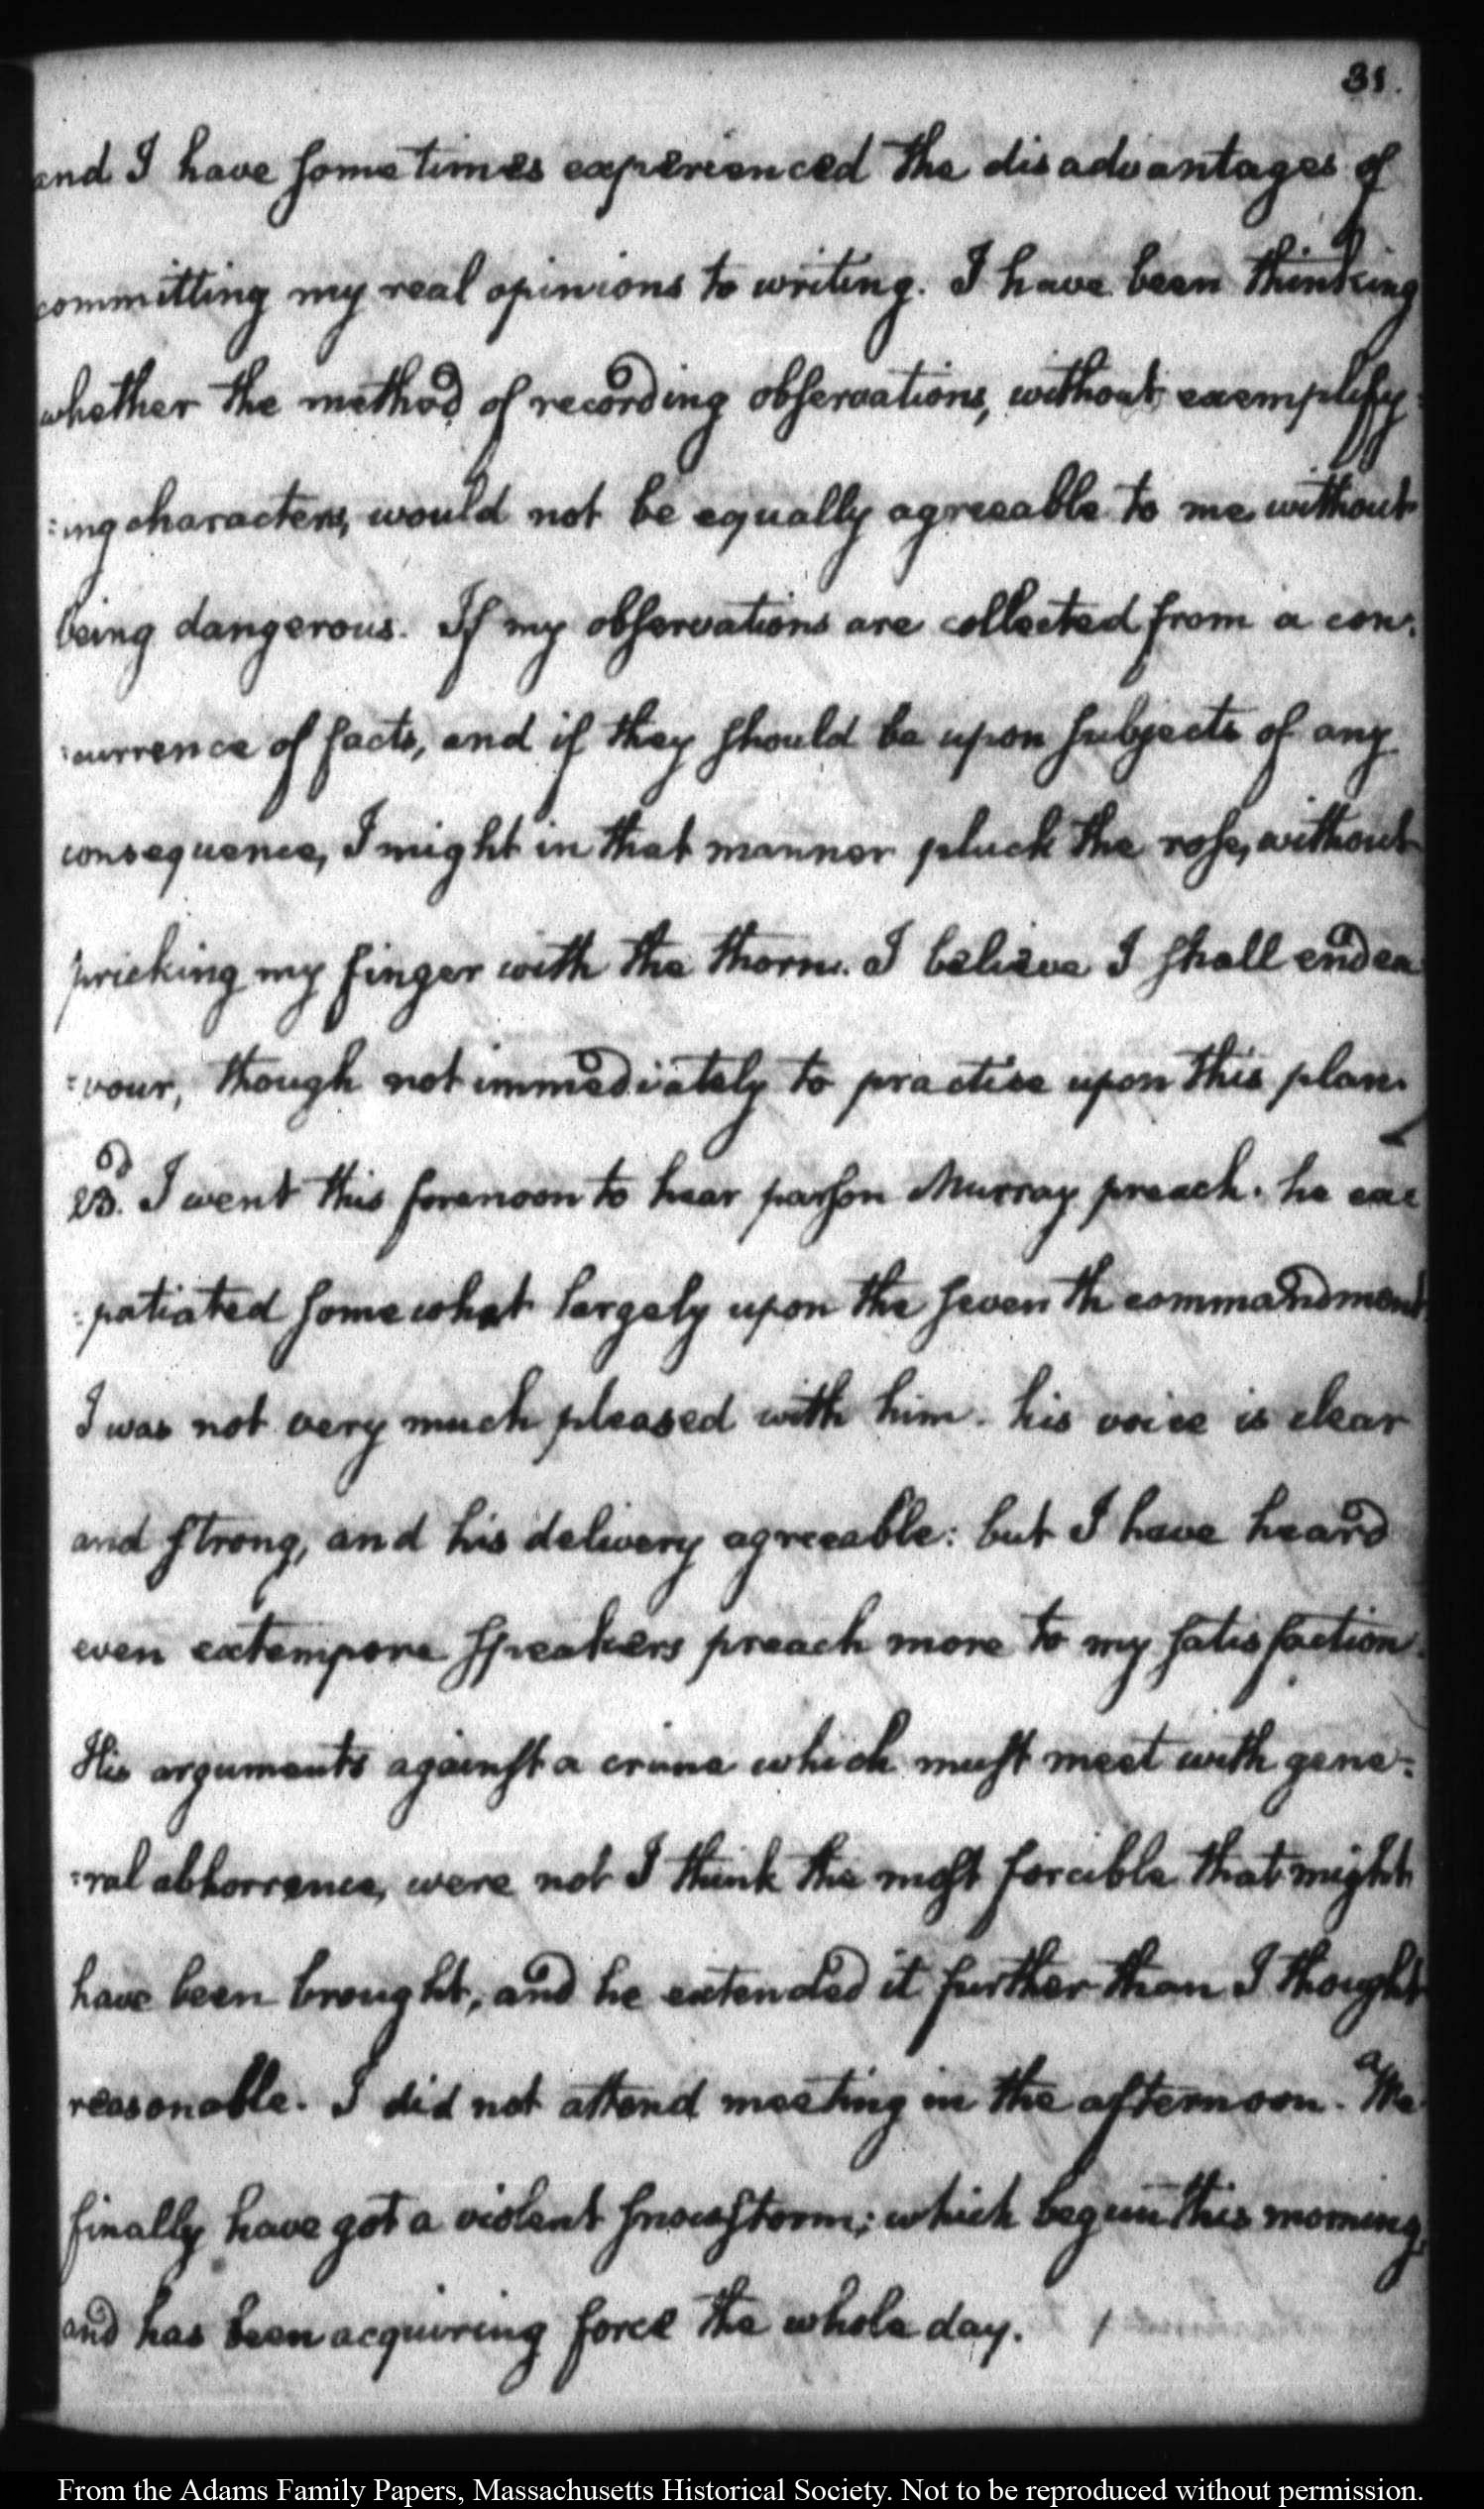 31.
and I have sometimes experienced the disadvantages of
committing my real opinions to writing. I have been thinking
whether the method of recording observations, without exemplify:
:ing characters, would not be equally agreeable to me without
being dangerous. If my observations are collected from a con:
:currence of facts, and if they should be upon subjects of any
consequence, I might in that manner pluck the rose, without
pricking my finger with the thorn. I believe I shall endea
:vour, though not immediately to practise upon this plan.
23d. I went this forenoon to hear parson Murray preach. he ex:
:patiated somewhat largely upon the seventh commandment
I was not very much pleased with him. his voice is clear
and strong, and his delivery agreeable: but I have heard
even extempore speakers preach more to my satisfaction.
His arguments against a crime which must meet with gene:
:ral abhorrence, were not I think the most forcible that might
have been brought, and he extended it further than I thought
reasonable. I did not attend meeting in the afternoon. We
finally have got a violent snow storm; which begun this morning,
and has been acquiring force the whole day.
From the Adams Family Papers, Massachusetts Historical Society. Not to be reproduced without permission.